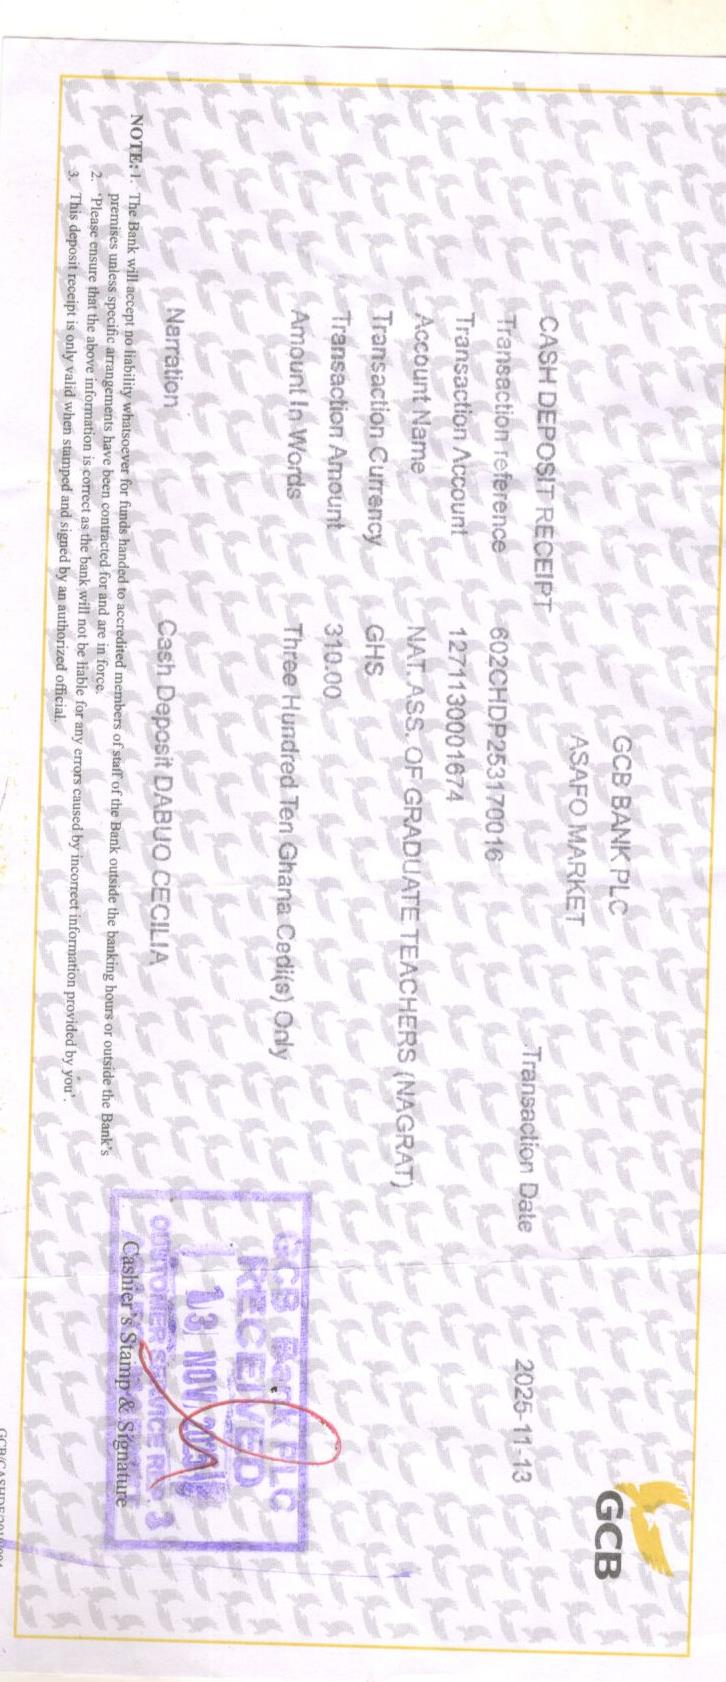 GCB BANK PLC
ASAFO MARKET
GCB
CASH DEPOSIT RECEIPT
Transaction Date 2025-11-13
Transaction reference 602CHDP253170016
Transaction Account 1271130001674
Account Name NAT. ASS. OF GRADUATE TEACHERS (NAGRAT)
Transaction Currency GHS
Transaction Amount 310.00
Amount In Words Three Hundred Ten Ghana Cedi(s) Only
Narration Cash Deposit DABUO CECILIA
GCB Bank PLC
RECEIVED
13 NOV 2025
CUSTOMER SERVICE REP. 3
Cashier's Stamp & Signature
NOTE: 1. The Bank will accept no liability whatsoever for funds handed to accredited members of staff of the Bank outside the banking hours or outside the Bank's
premises unless specific arrangements have been contracted for and are in force.
2. 'Please ensure that the above information is correct as the bank will not be liable for any errors caused by incorrect information provided by you'.
3. This deposit receipt is only valid when stamped and signed by an authorized official.